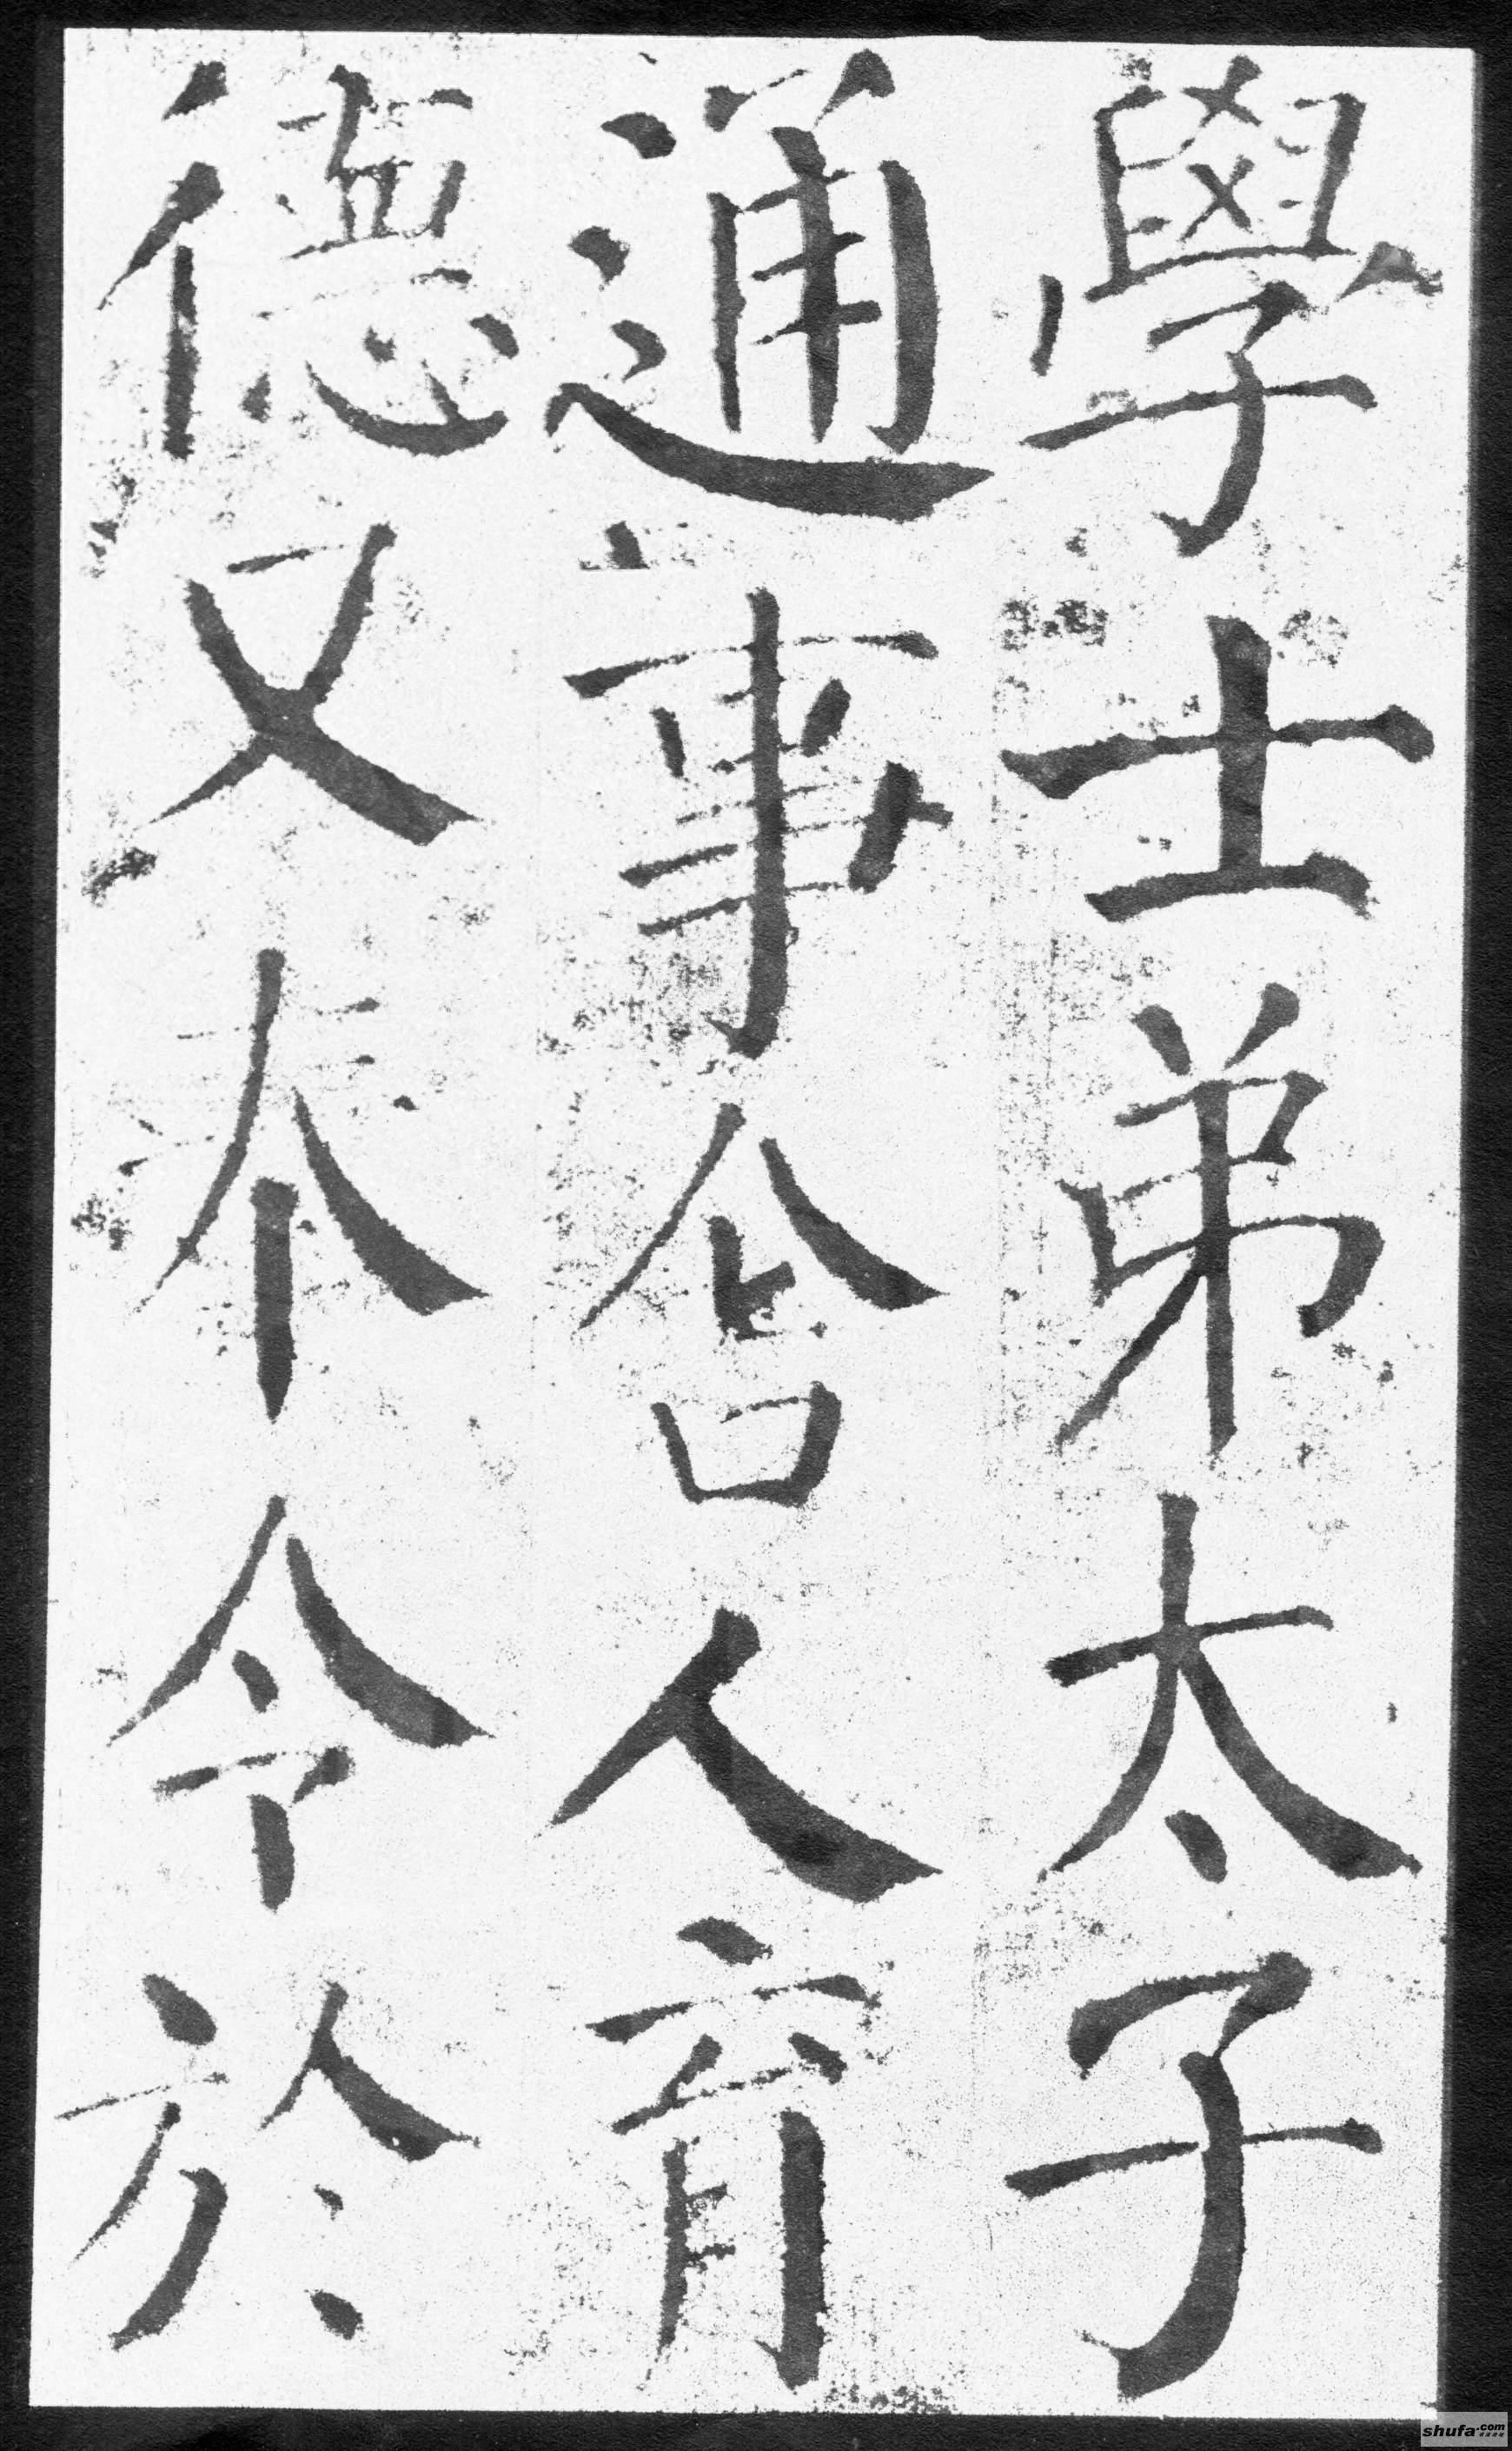 學士弟太子
通事舍人育
德又奉令於
shufa.com